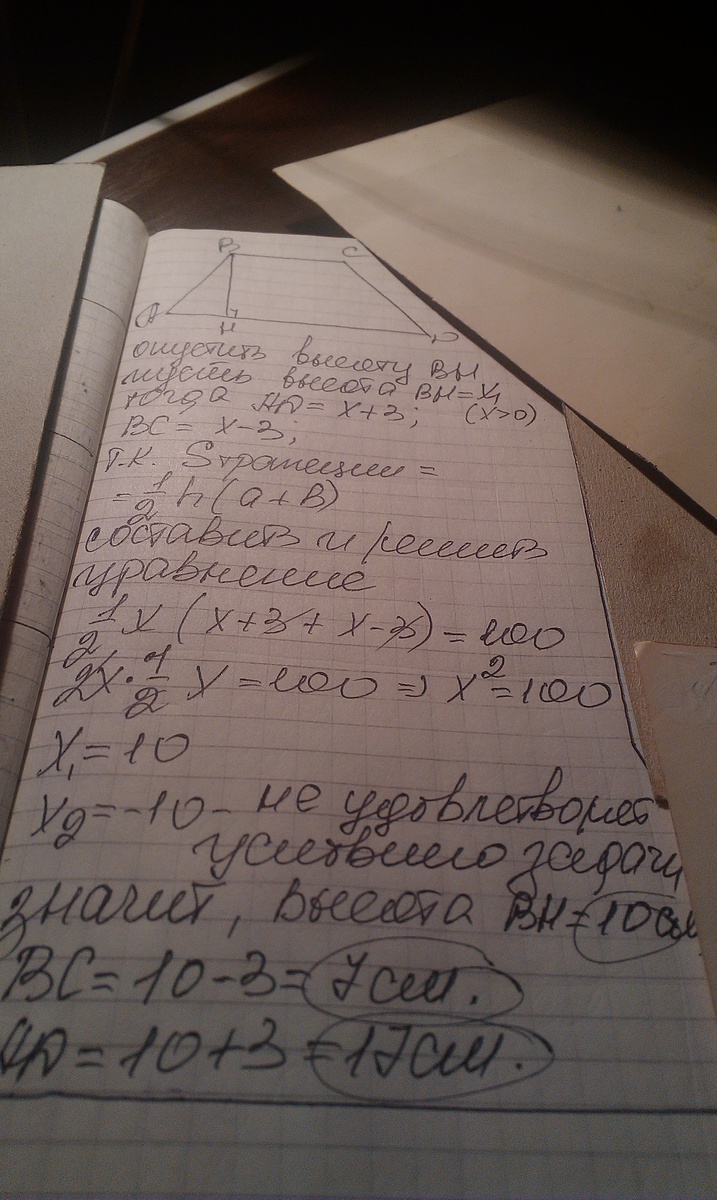 B C
A H D
опустить высоту BH
пусть высота BH=x,
тогда AD= x+3; (x>0)
BC= x-3;
т.к. Sтрапеции =
= 1/2 h(a+b)
составить и решить
уравнение
1/2 x (x+3+x-3)=100
2x·1/2 x=100 => x²=100
x₁=10
x₂=-10- не удовлетворяет
условию задачи
значит, высота BH=10см
BC=10-3=7см.
AD=10+3=17см.